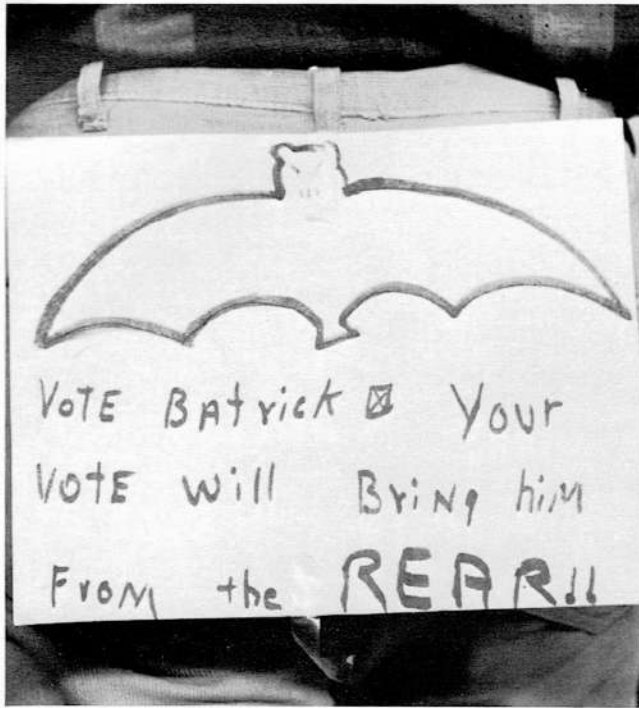 VOTE BAtrick ☒ Your
VOTE will Bring him
From the REAR!!